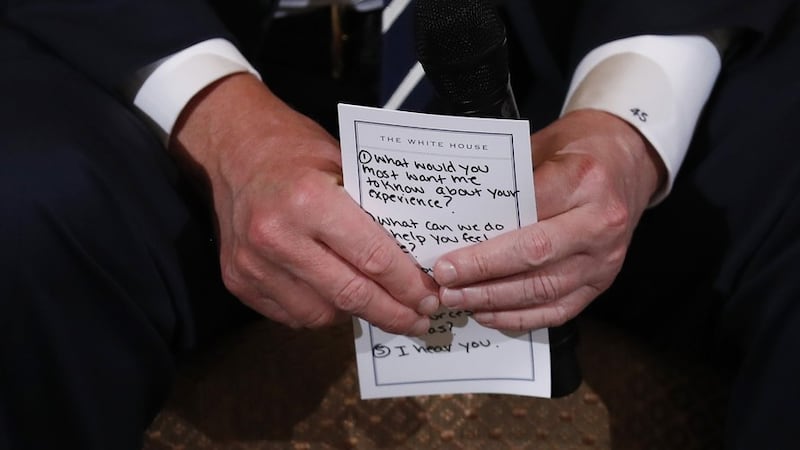 THE WHITE HOUSE
① What would you
most want me
to know about your
experience?
What can we do
help you feel
as?
⑤ I hear you.
45